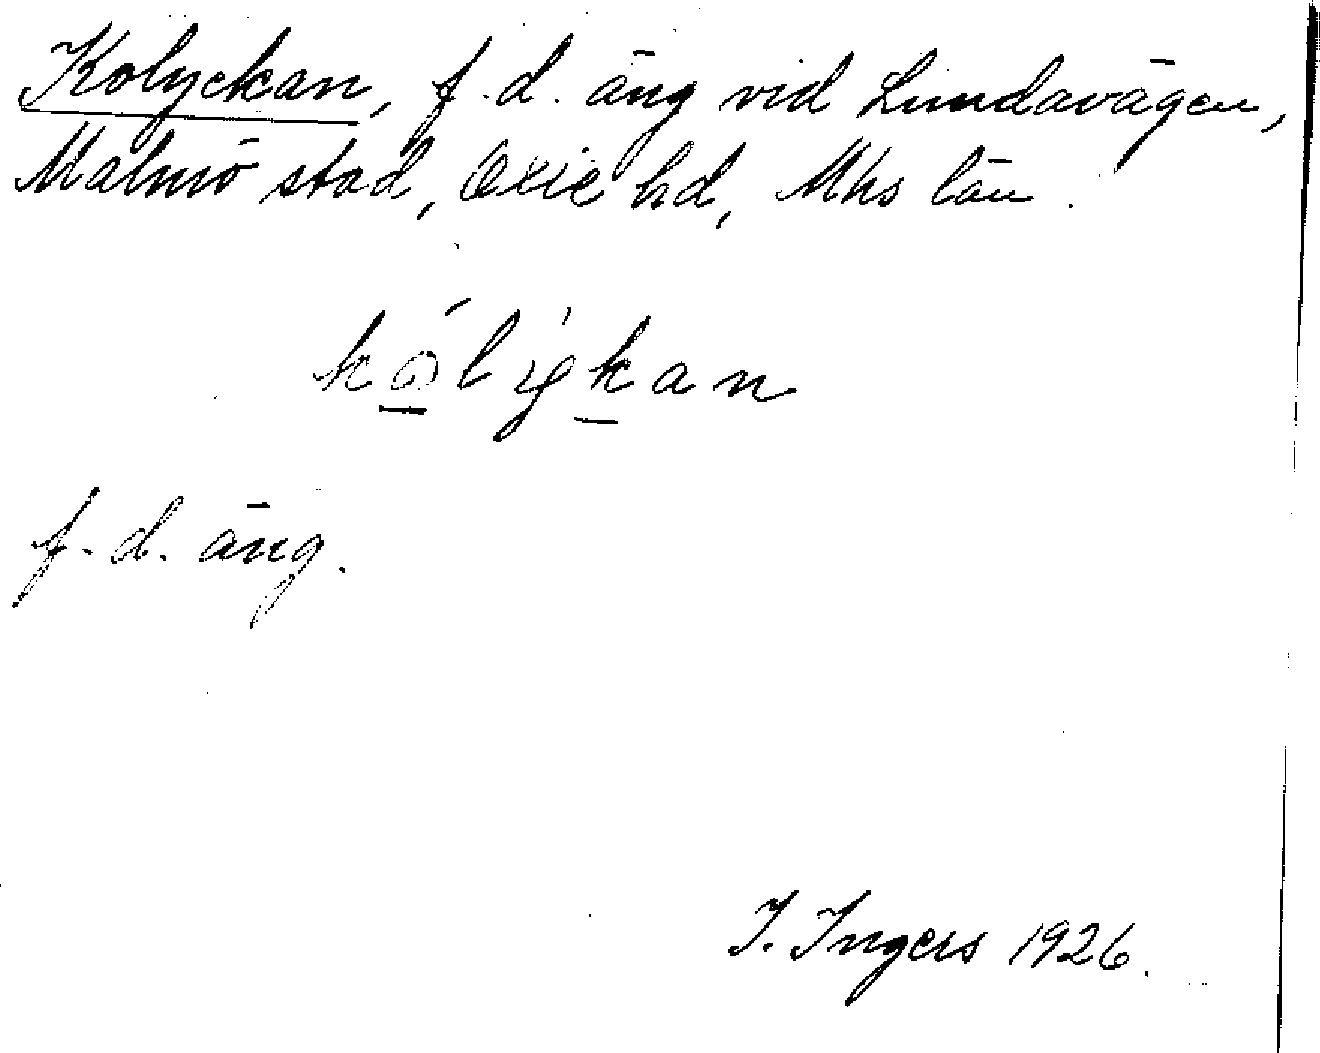 Kolyckan, f. d. äng vid Lundavägen,
Malmö stad, Oxie hd, Mhs län.
kólýkan
f. d. äng.
I. Ingers 1926.